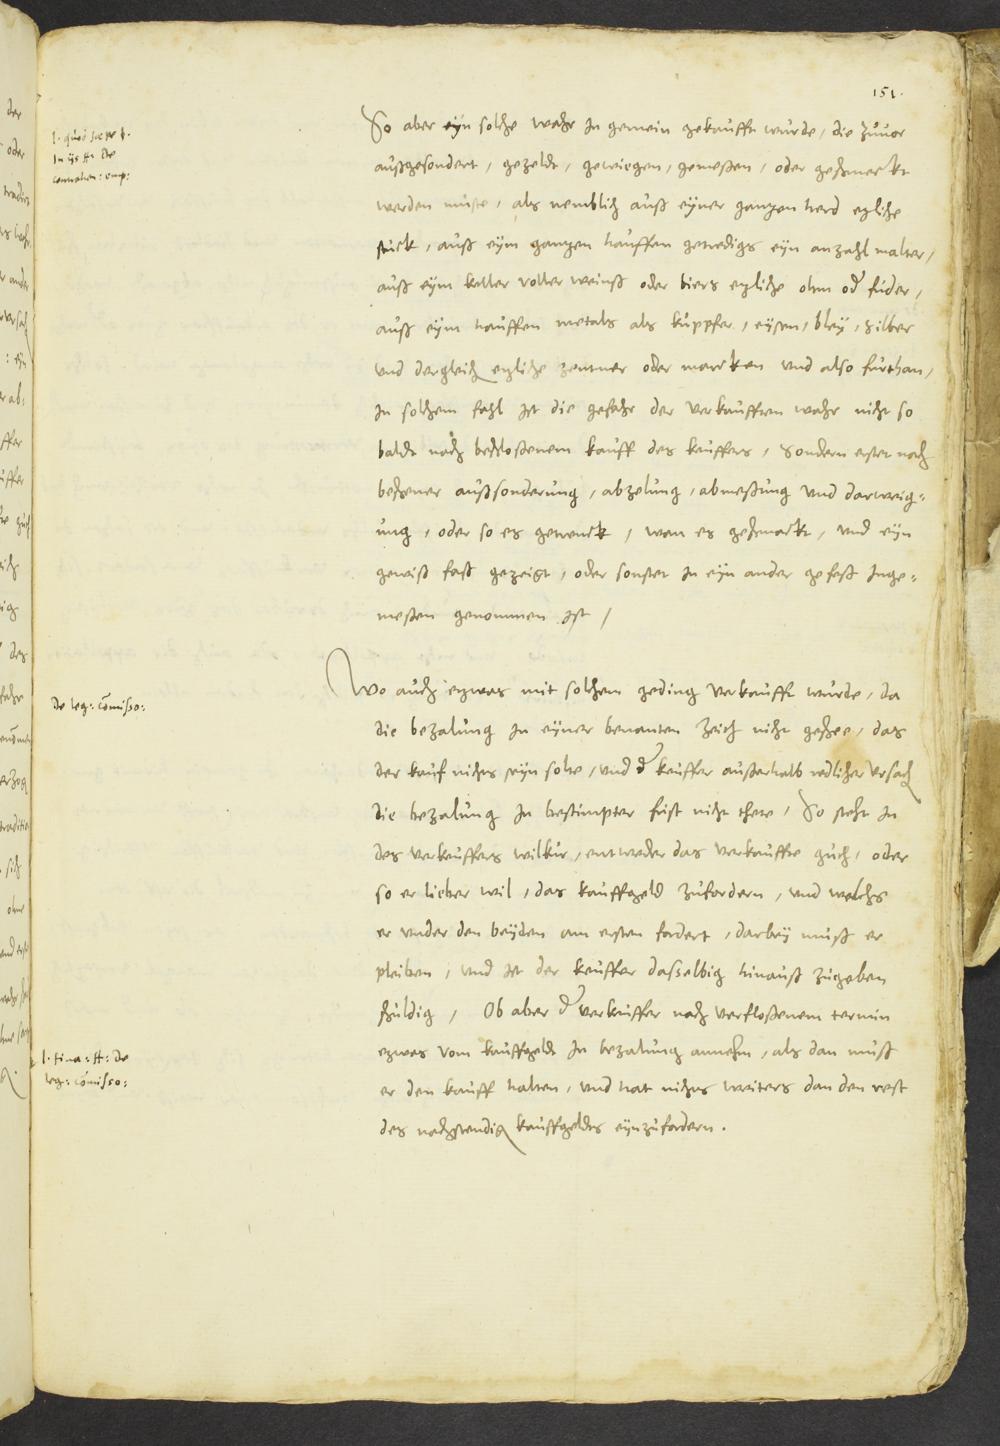 151.
So aber eyn solche wahr in gemein gekaufft wurde, die zuuor
außgesondert, gezeldt, gewiegen, gemeßen, oder geschmeckt
werden muste, als nemblich auß eyner gantzen herd etzliche
stuck, auß eym gantzen hauffen getredigs eyn anzahl malter,
auß eym keller voller weinß oder biers etzliche ohm od fuder,
auß eym hauffen metals als kuppfer, eysen, bley, silber
vnd dergleich etzliche zentner oder marcken vnd also furthan,
In solchem fahl ist die gefahr der verkaufften wahr nicht so
baldt nach beschloßenem kauff des keuffers, Sondern erster nach
beschener außsonderung, abzelung, abmeßung vnd darweig=
ung, oder so es getrenck, wan es geschmackt, vnd eyn
gewiß faß gezeigt, oder sonster in eyn ander gefeß inge=
meßen genommen ist,
Wo auch etzwas mit solchem geding verkaufft wurde, da
die bezalung in eyner benanten zeith nicht geschee, das
der kauf nichts seyn solte, vnd d keuffer außerhalb redlicher vrsach
die bezalung in bestimpter frist nicht thete, So steht in
des verkeuffers wilkur, entweder das verkauffte guth, oder
so er lieber wil, das kauffgeld zufordern, vnd welchs
er vnder den beyden am ersten fordert, darbey muß er
pleiben, vnd ist der keuffer dasselbig hinauß zugeben
schuldig, Ob aber d verkeuffer nach verfloßenem termin
etzwas vom kauffgeldt in bezalung annehm, als dan muß
er den kauff halten, vnd hat nichts weiters dan den rest
des nachstendig kauffgelds eynzufordern.
l. quod sæpe §.
In ijs ff. de
contrahen: emp:
De leg: comisso:
l. ff. De
leg: comisso: